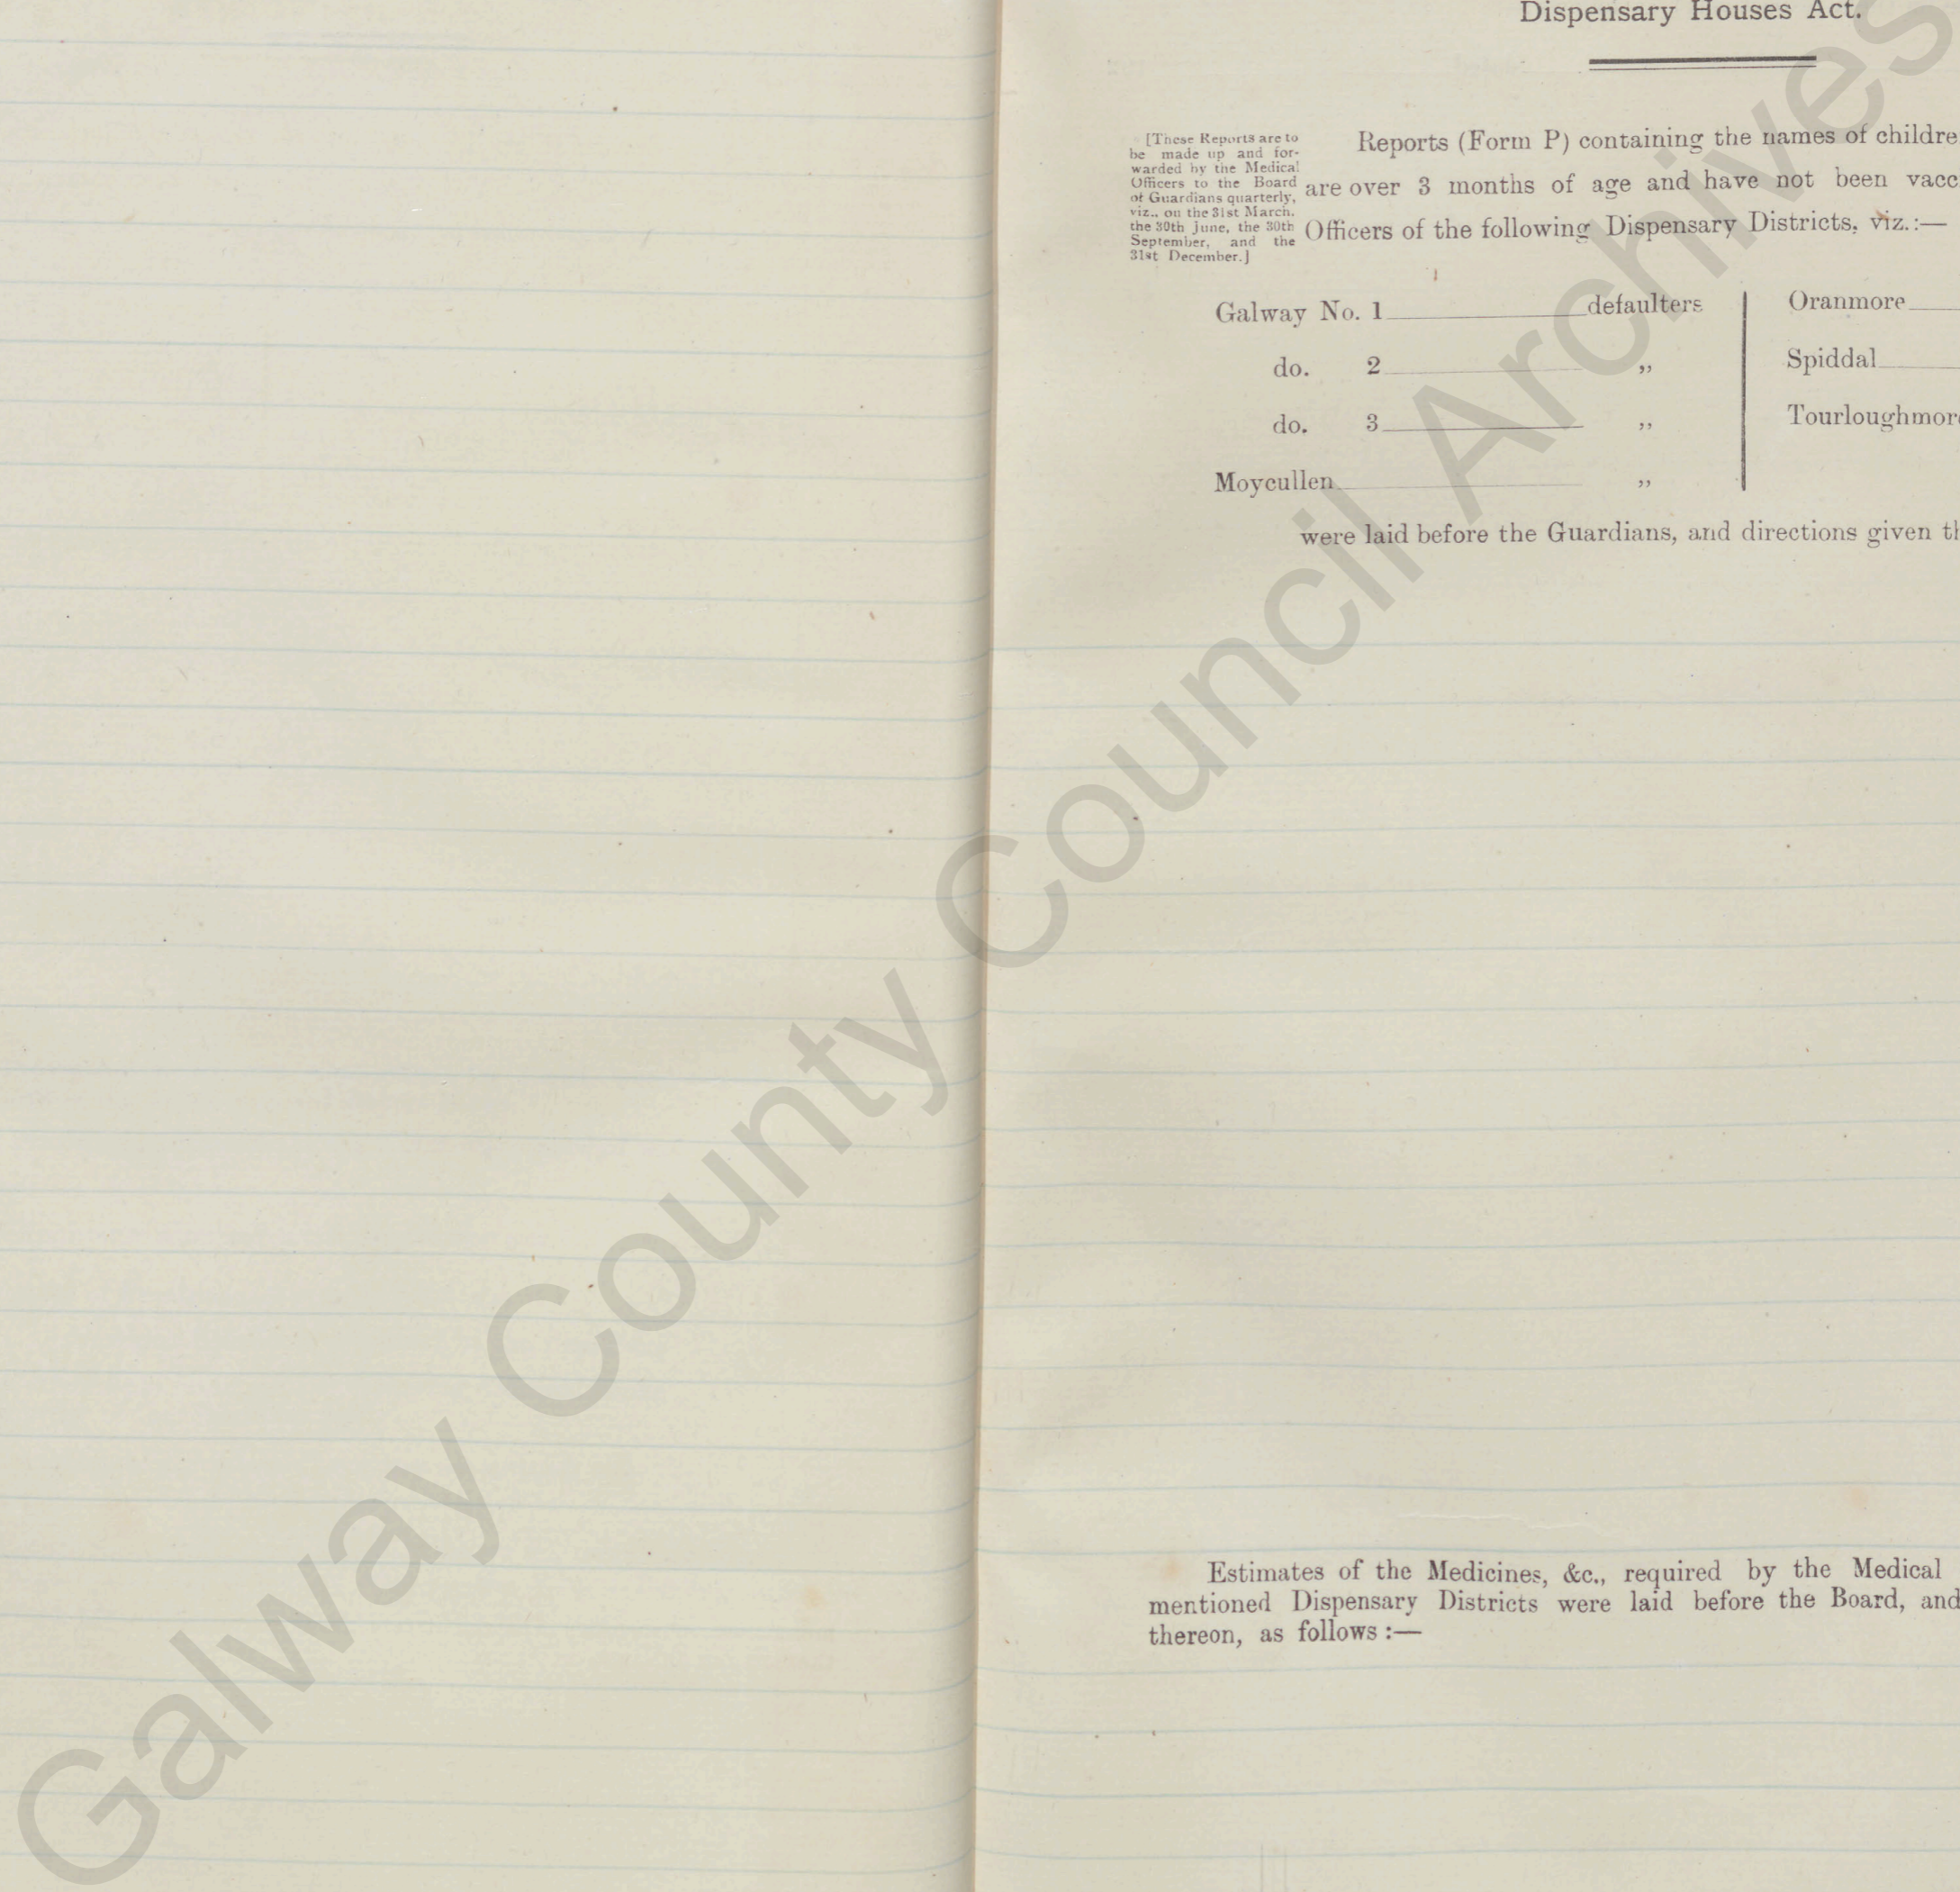 Dispensary Houses Act.
[These Reports are to
be made up and for-
warded by the Medical
Officers to the Board
of Guardians quarterly,
viz., on the 31st March,
the 30th June, the 30th
September, and the
31st December.]
Reports (Form P) containing the names of childre
are over 3 months of age and have not been vacc
Officers of the following Dispensary Districts, viz.:—
Galway No. 1 defaulters
do. 2 ,,
do. 3 ,,
Moycullen ,,
Oranmore
Spiddal
Tourloughmor
were laid before the Guardians, and directions given th
Estimates of the Medicines, &c., required by the Medical
mentioned Dispensary Districts were laid before the Board, and
thereon, as follows :—
Galway County Council Archives